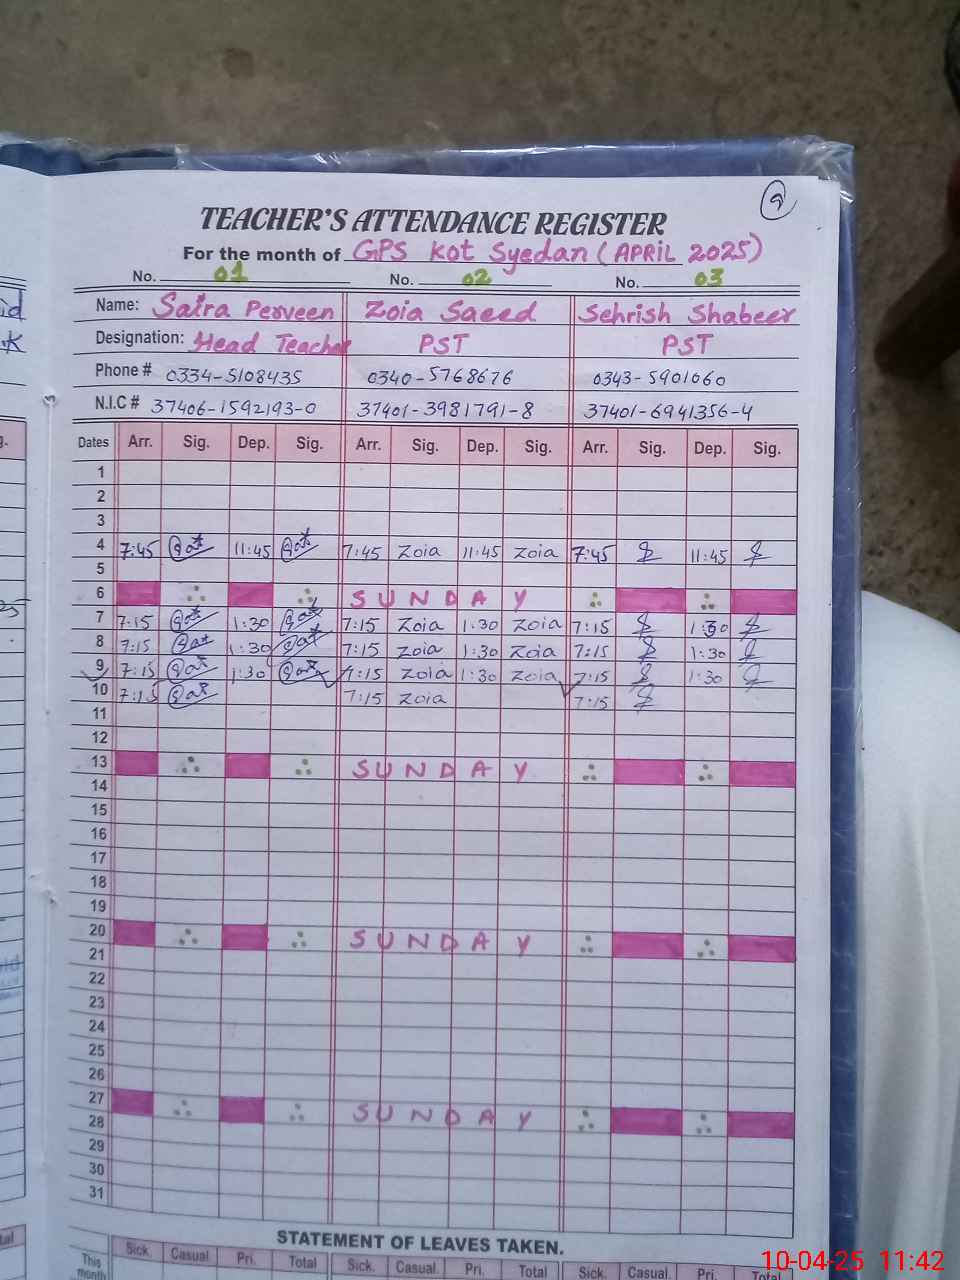 9
TEACHER'S ATTENDANCE REGISTER
For the month of GPS Kot Syedan (APRIL 2025)
No. 01 No. 02 No. 03
Name: Saira Perveen Zoia Saeed Sehrish Shabeer
Designation: Head Teacher PST PST
Phone # 0334-5108435 0340-5768676 0343-5901060
N.I.C # 37406-1592193-0 37401-3981791-8 37401-6941356-4
Dates Arr. Sig. Dep. Sig. Arr. Sig. Dep. Sig. Arr. Sig. Dep. Sig.
1
2
3
4 7:45 11:45 7:45 Zoia 11:45 Zoia 7:45 11:45
5
6 SUNDAY
7 7:15 1:30 7:15 Zoia 1:30 Zoia 7:15 1:30
8 7:15 1:30 7:15 Zoia 1:30 Zoia 7:15 1:30
9 7:15 1:30 7:15 Zoia 1:30 Zoia 7:15 1:30
10 7:15 7:15 Zoia 7:15
11
12
13 SUNDAY
14
15
16
17
18
19
20 SUNDAY
21
22
23
24
25
26
27 SUNDAY
28
29
30
31
STATEMENT OF LEAVES TAKEN.
This month Sick. Casual. Pri. Total Sick. Casual. Pri. Total Sick. Casual. Pri. Total
10-04-25 11:42